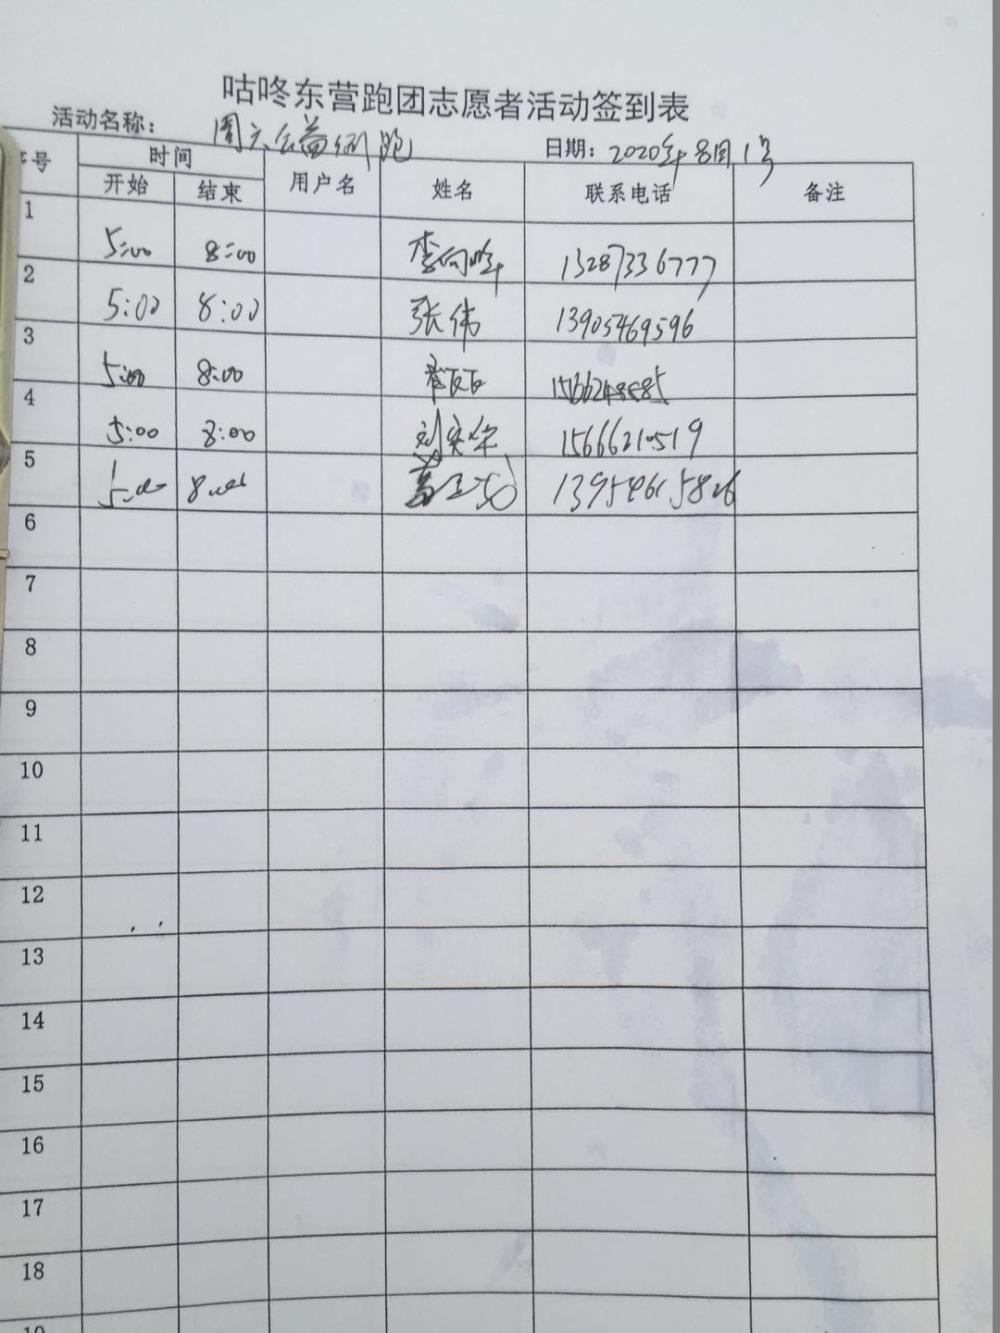 咕咚东营跑团志愿者活动签到表
活动名称： 周六公益训跑 日期：2020年8月1号
序号 时间 用户名 姓名 联系电话 备注
开始 结束
1 5:00 8:00 李向峰 13287336777
2 5:00 8:00 张伟 13905469596
3 5:00 8:00
4 5:00 8:00 15666210519
5 5:00 8:00
6
7
8
9
10
11
12
13
14
15
16
17
18
19